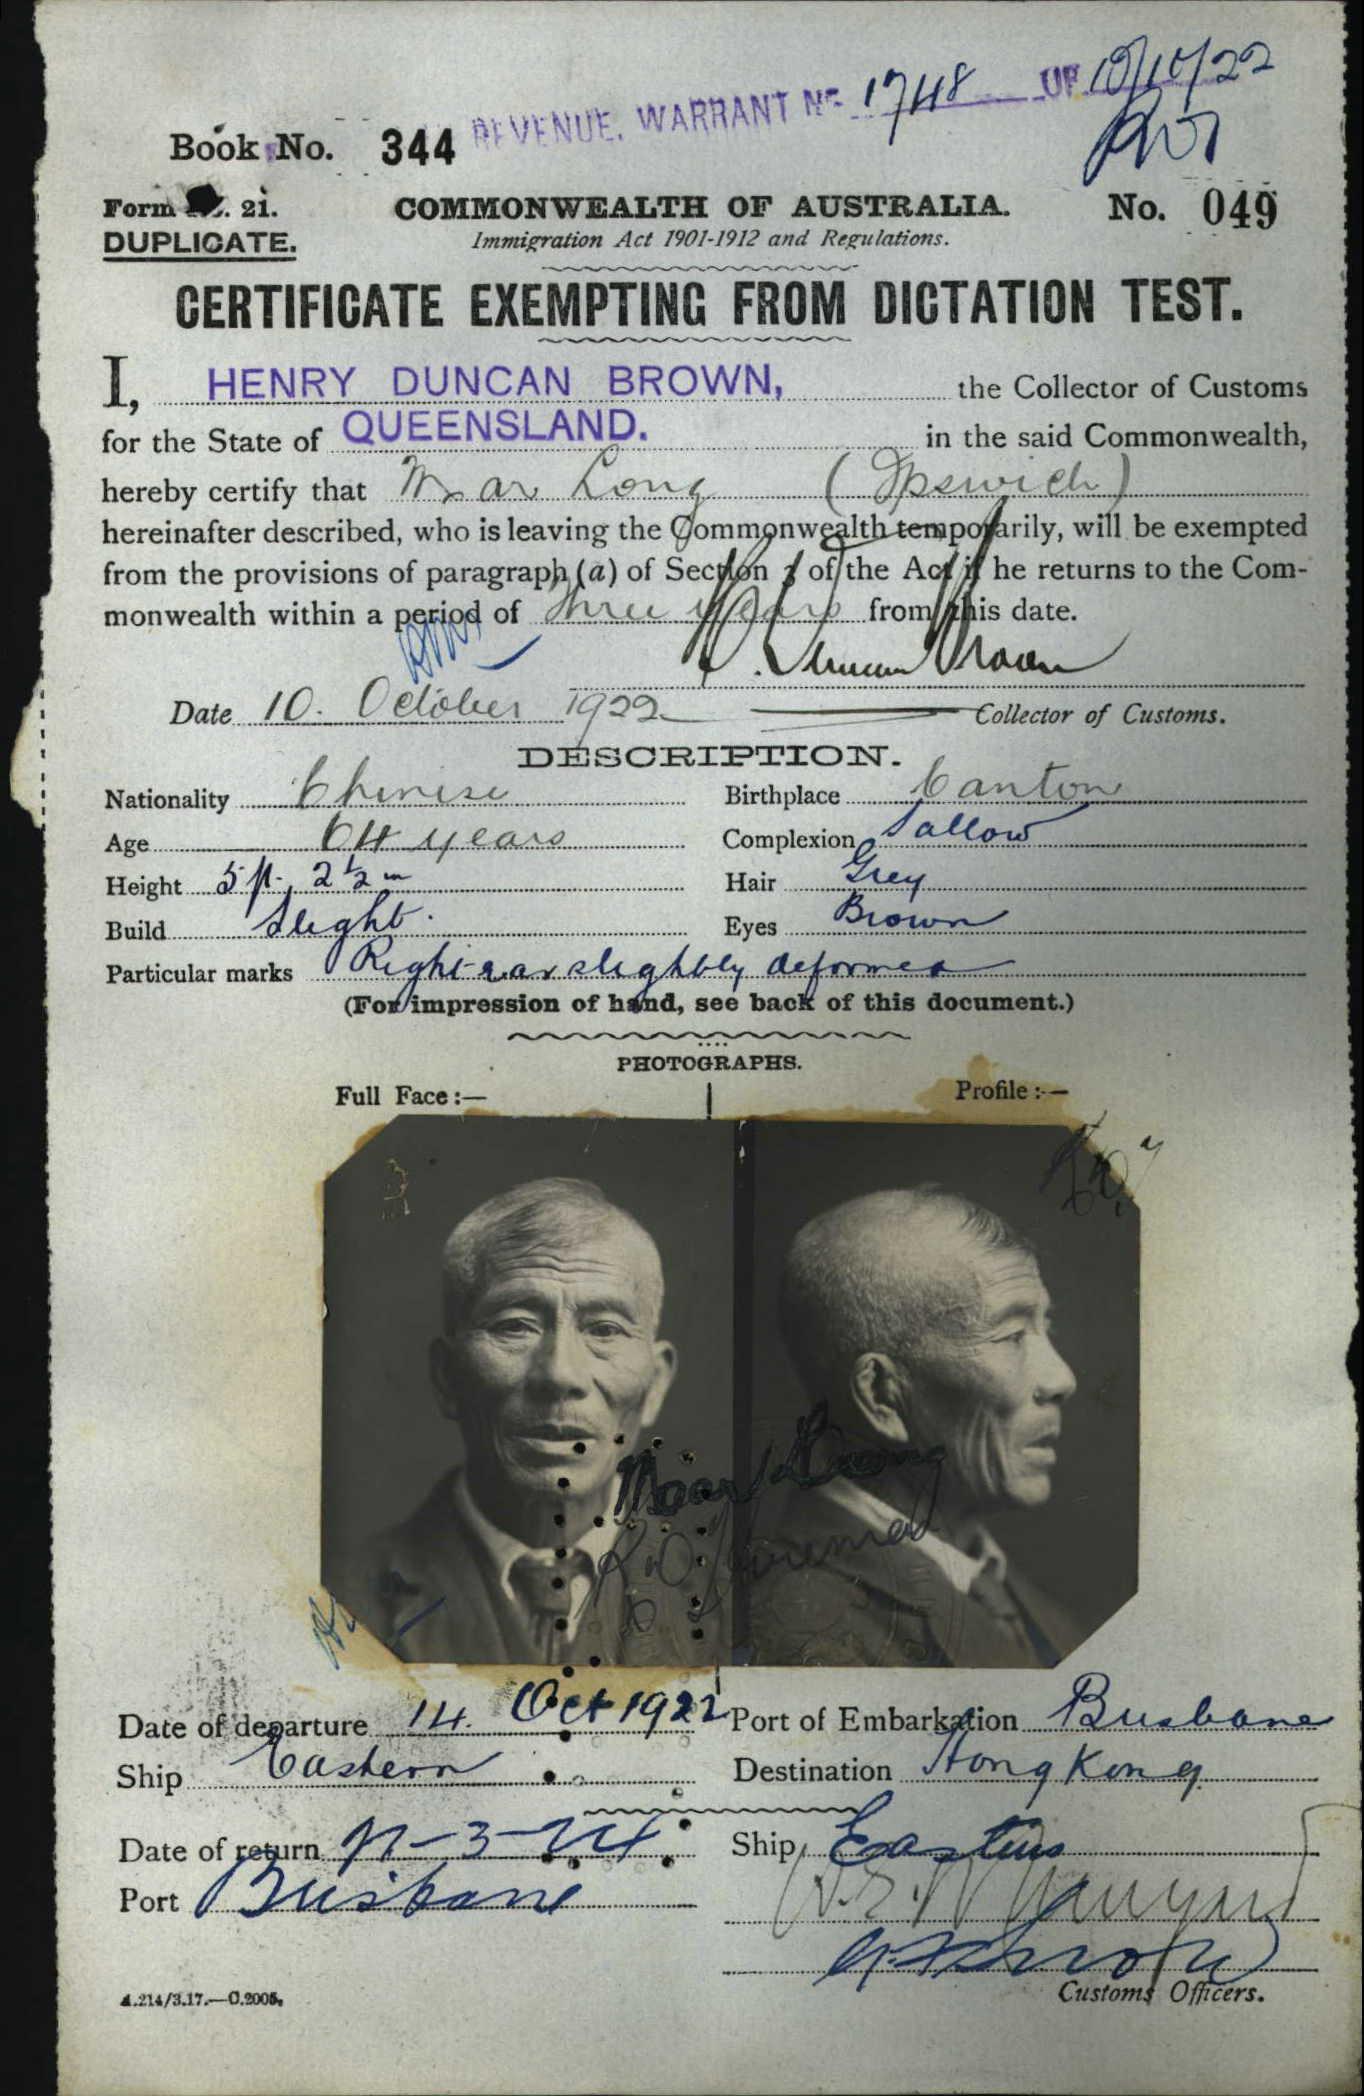 REVENUE. WARRANT No. 1748 OF 10/10/22
Book No. 344
Form No. 21.
DUPLICATE.
COMMONWEALTH OF AUSTRALIA.
Immigration Act 1901-1912 and Regulations.
No. 049
CERTIFICATE EXEMPTING FROM DICTATION TEST.
I, HENRY DUNCAN BROWN, the Collector of Customs
for the State of QUEENSLAND. in the said Commonwealth,
hereby certify that Mar Long (Ipswich)
hereinafter described, who is leaving the Commonwealth temporarily, will be exempted
from the provisions of paragraph (a) of Section 3 of the Act if he returns to the Com-
monwealth within a period of Three Years from this date.
H. Duncan Brown
Date 10. October 1922 Collector of Customs.
DESCRIPTION.
Nationality Chinese Birthplace Canton
Age 64 years Complexion Sallow
Height 5 ft. 2½ in Hair Grey
Build Slight. Eyes Brown
Particular marks Right ear slightly deformed
(For impression of hand, see back of this document.)
PHOTOGRAPHS.
Full Face :— Profile :—
Date of departure 14. Oct 1922 Port of Embarkation Brisbane
Ship Eastern Destination Hong Kong
Date of return Ship Eastern
Port Brisbane
Customs Officers.
A.214/3.17.—C.2005.